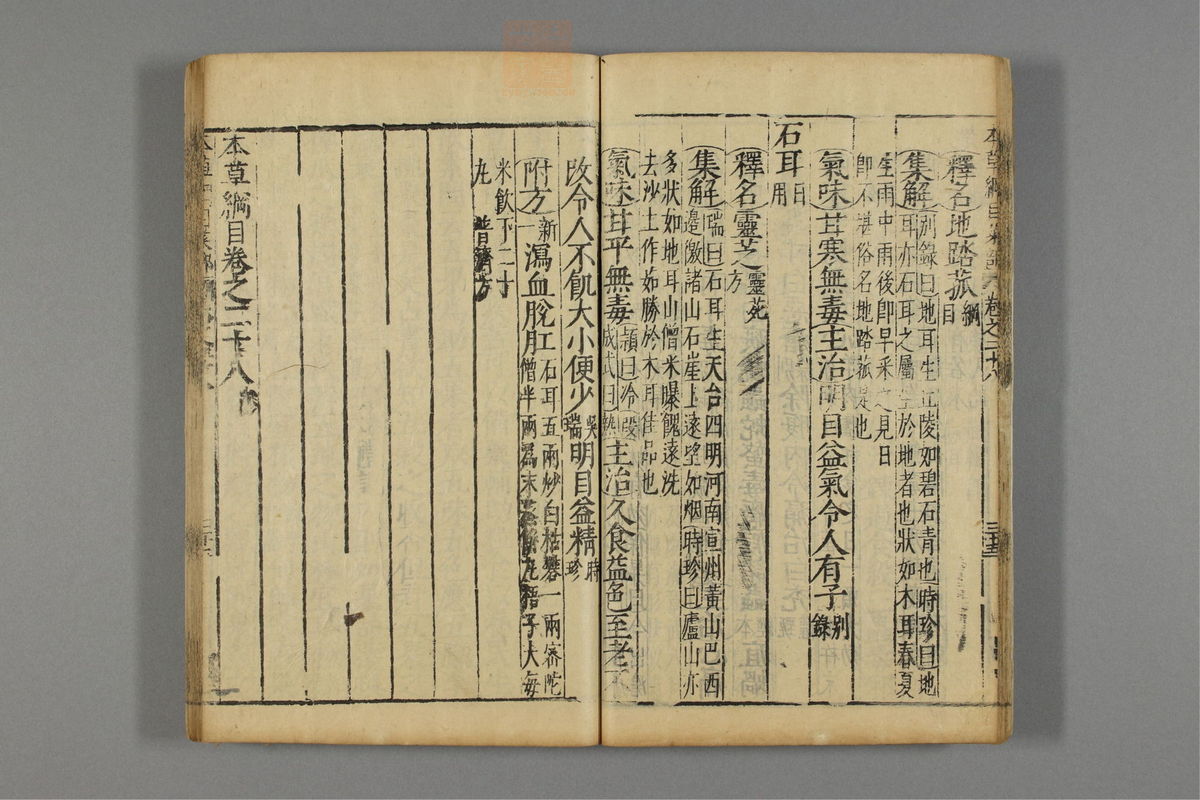 釋名地踏菰綱目
集解別錄曰地耳生丘陵如碧石青也時珍曰地
耳亦石耳之屬生於地者也狀如木耳春夏
生雨中雨後即早采之見日
即不堪俗名地踏菰是也
氣味甘寒無毒主治明目益氣令人有子別錄
石耳日用
釋名靈芝靈苑方
集解瑞曰石耳生天台四明河南宣州黃山巴西
邊徼諸山石崖上遠望如烟時珍曰廬山亦
多狀如地耳山僧采曝餽遠洗
去沙土作茹勝於木耳佳品也
氣味甘平無毒穎曰冷叚成式曰熱主治久食益色至老不
攺令人不飢大小便少吳瑞明目益精時珍
附方新一瀉血脫肛石耳五兩炒白枯礬一兩密陀
僧半兩爲末蒸餅丸梧子大每
米飲下二十
丸普濟方
本草綱目卷之二十八